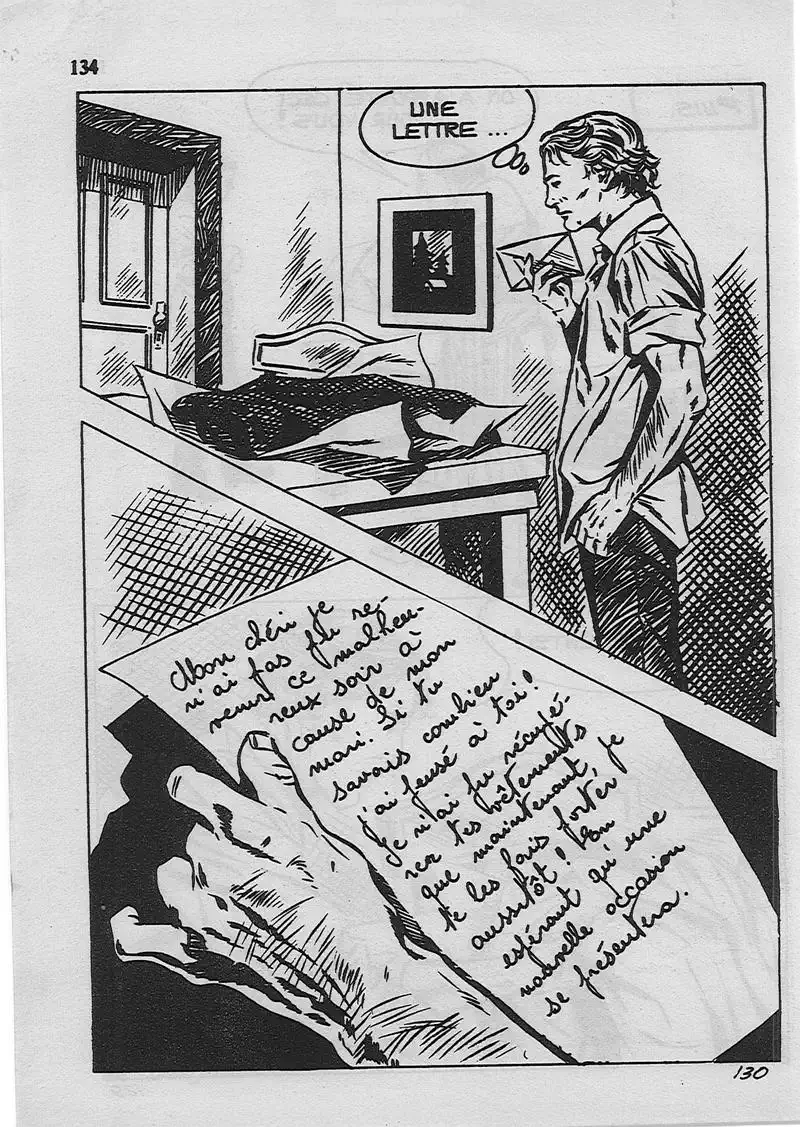 134
UNE
LETTRE ...
Mon chéri je
n'ai pas pu re-
venir ce malheu-
reux soir à
cause de mon
mari. Si tu
savais combien
j'ai pensé à toi !
Je n'ai pu récupé-
rer tes vêtements
que maintenant je
te les fais porter
aussitôt ! En
espérant qu'une
nouvelle occasion
se présentera.
130